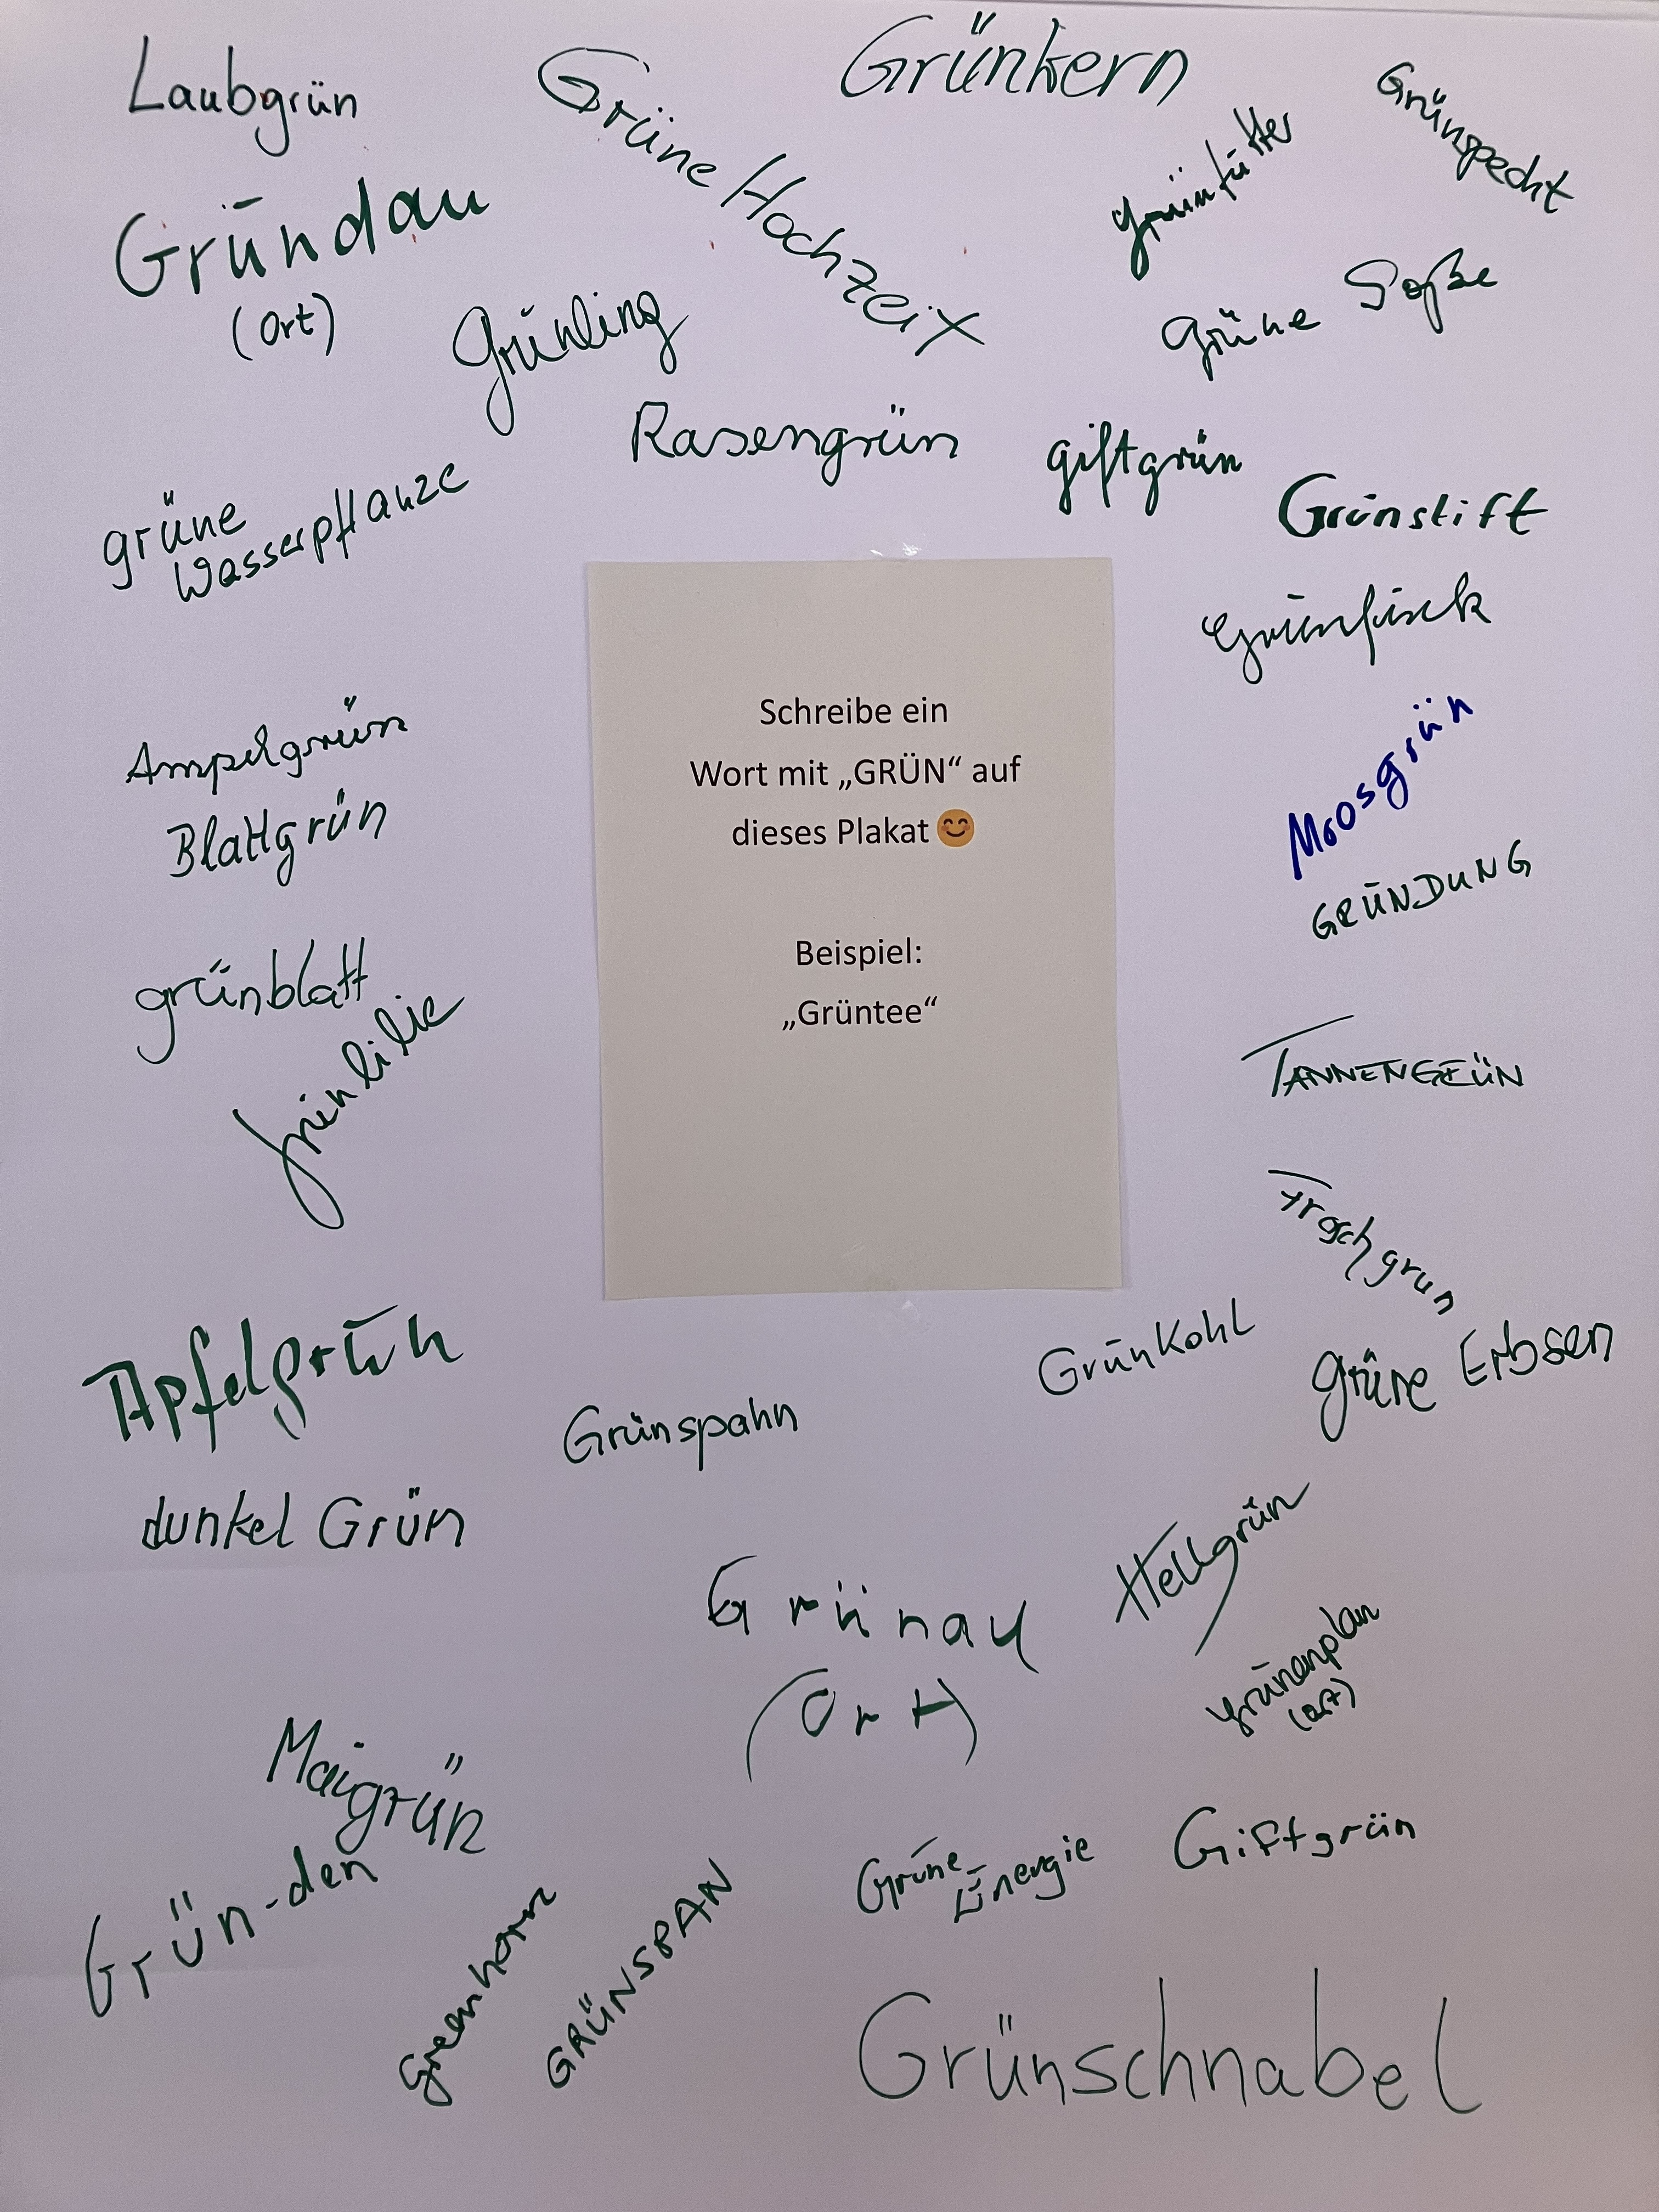 Laubgrün
Grüne Hochzeit
Grünkern
Grünspecht
Grünfutter
Gründau
(Ort)
Grünling
Grüne Soße
Rasengrün
giftgrün
Grünstift
grüne
Wasserpflanze
Grünfink
Schreibe ein
Wort mit „GRÜN“ auf
dieses Plakat 😊
Beispiel:
„Grüntee“
Ampelgrün
Blattgrün
Moosgrün
GRÜNDUNG
grünblatt
grünlilie
TANNENGRÜN
Froschgrün
Apfelgrün
Grünkohl
grüne Erbsen
Grünspahn
dunkel Grün
Hellgrün
Grünau
(Ort)
Grünenplan
(Ort)
Maigrün
Grün-den
Greenhorn
GRÜNSPAN
Grüne
Energie
Giftgrün
Grünschnabel